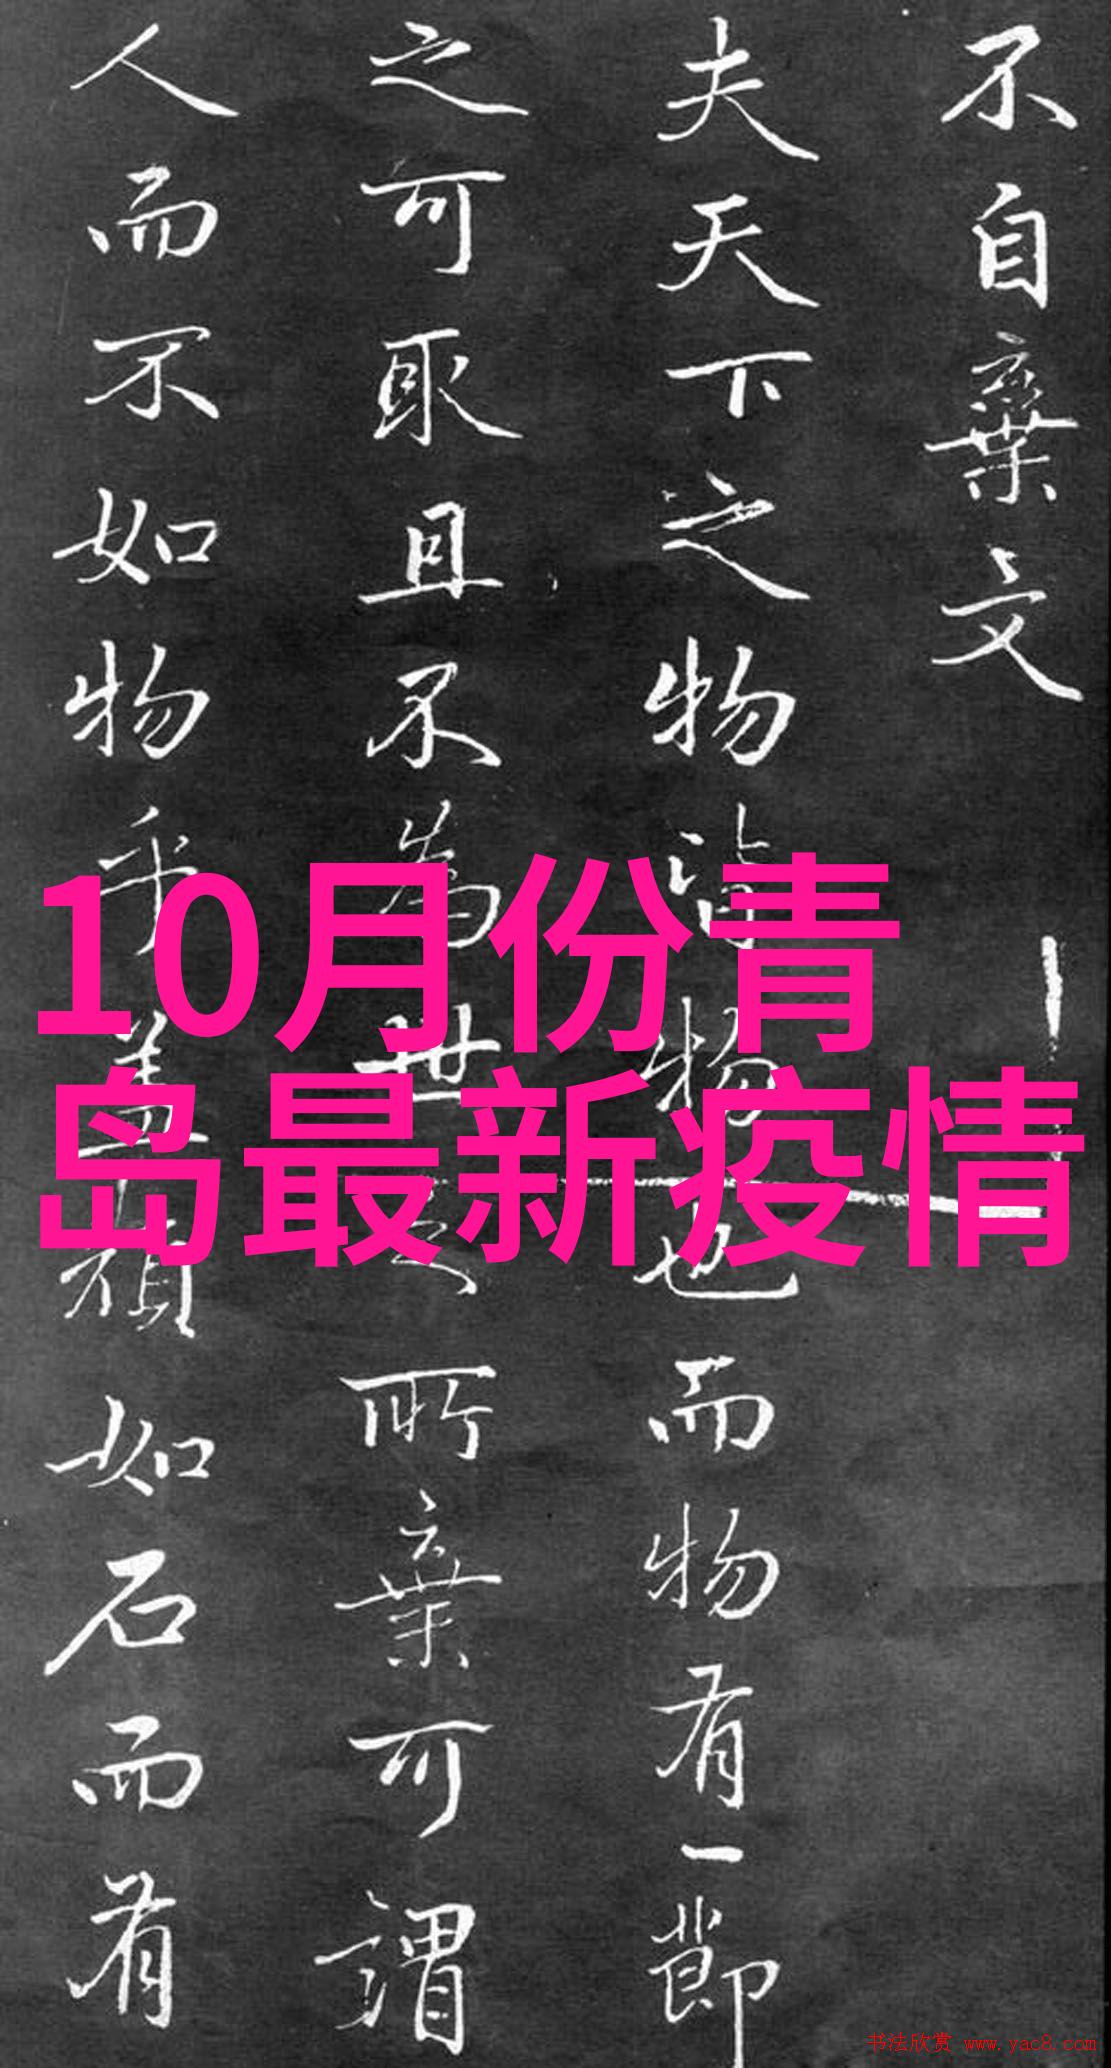 不自棄文
夫天下之物皆物也而物有一節
之可取且不為世之所棄可謂
人而不如物乎蓋頑如石而有
10月份青
岛最新疫情
书法欣赏 www.yac8.com